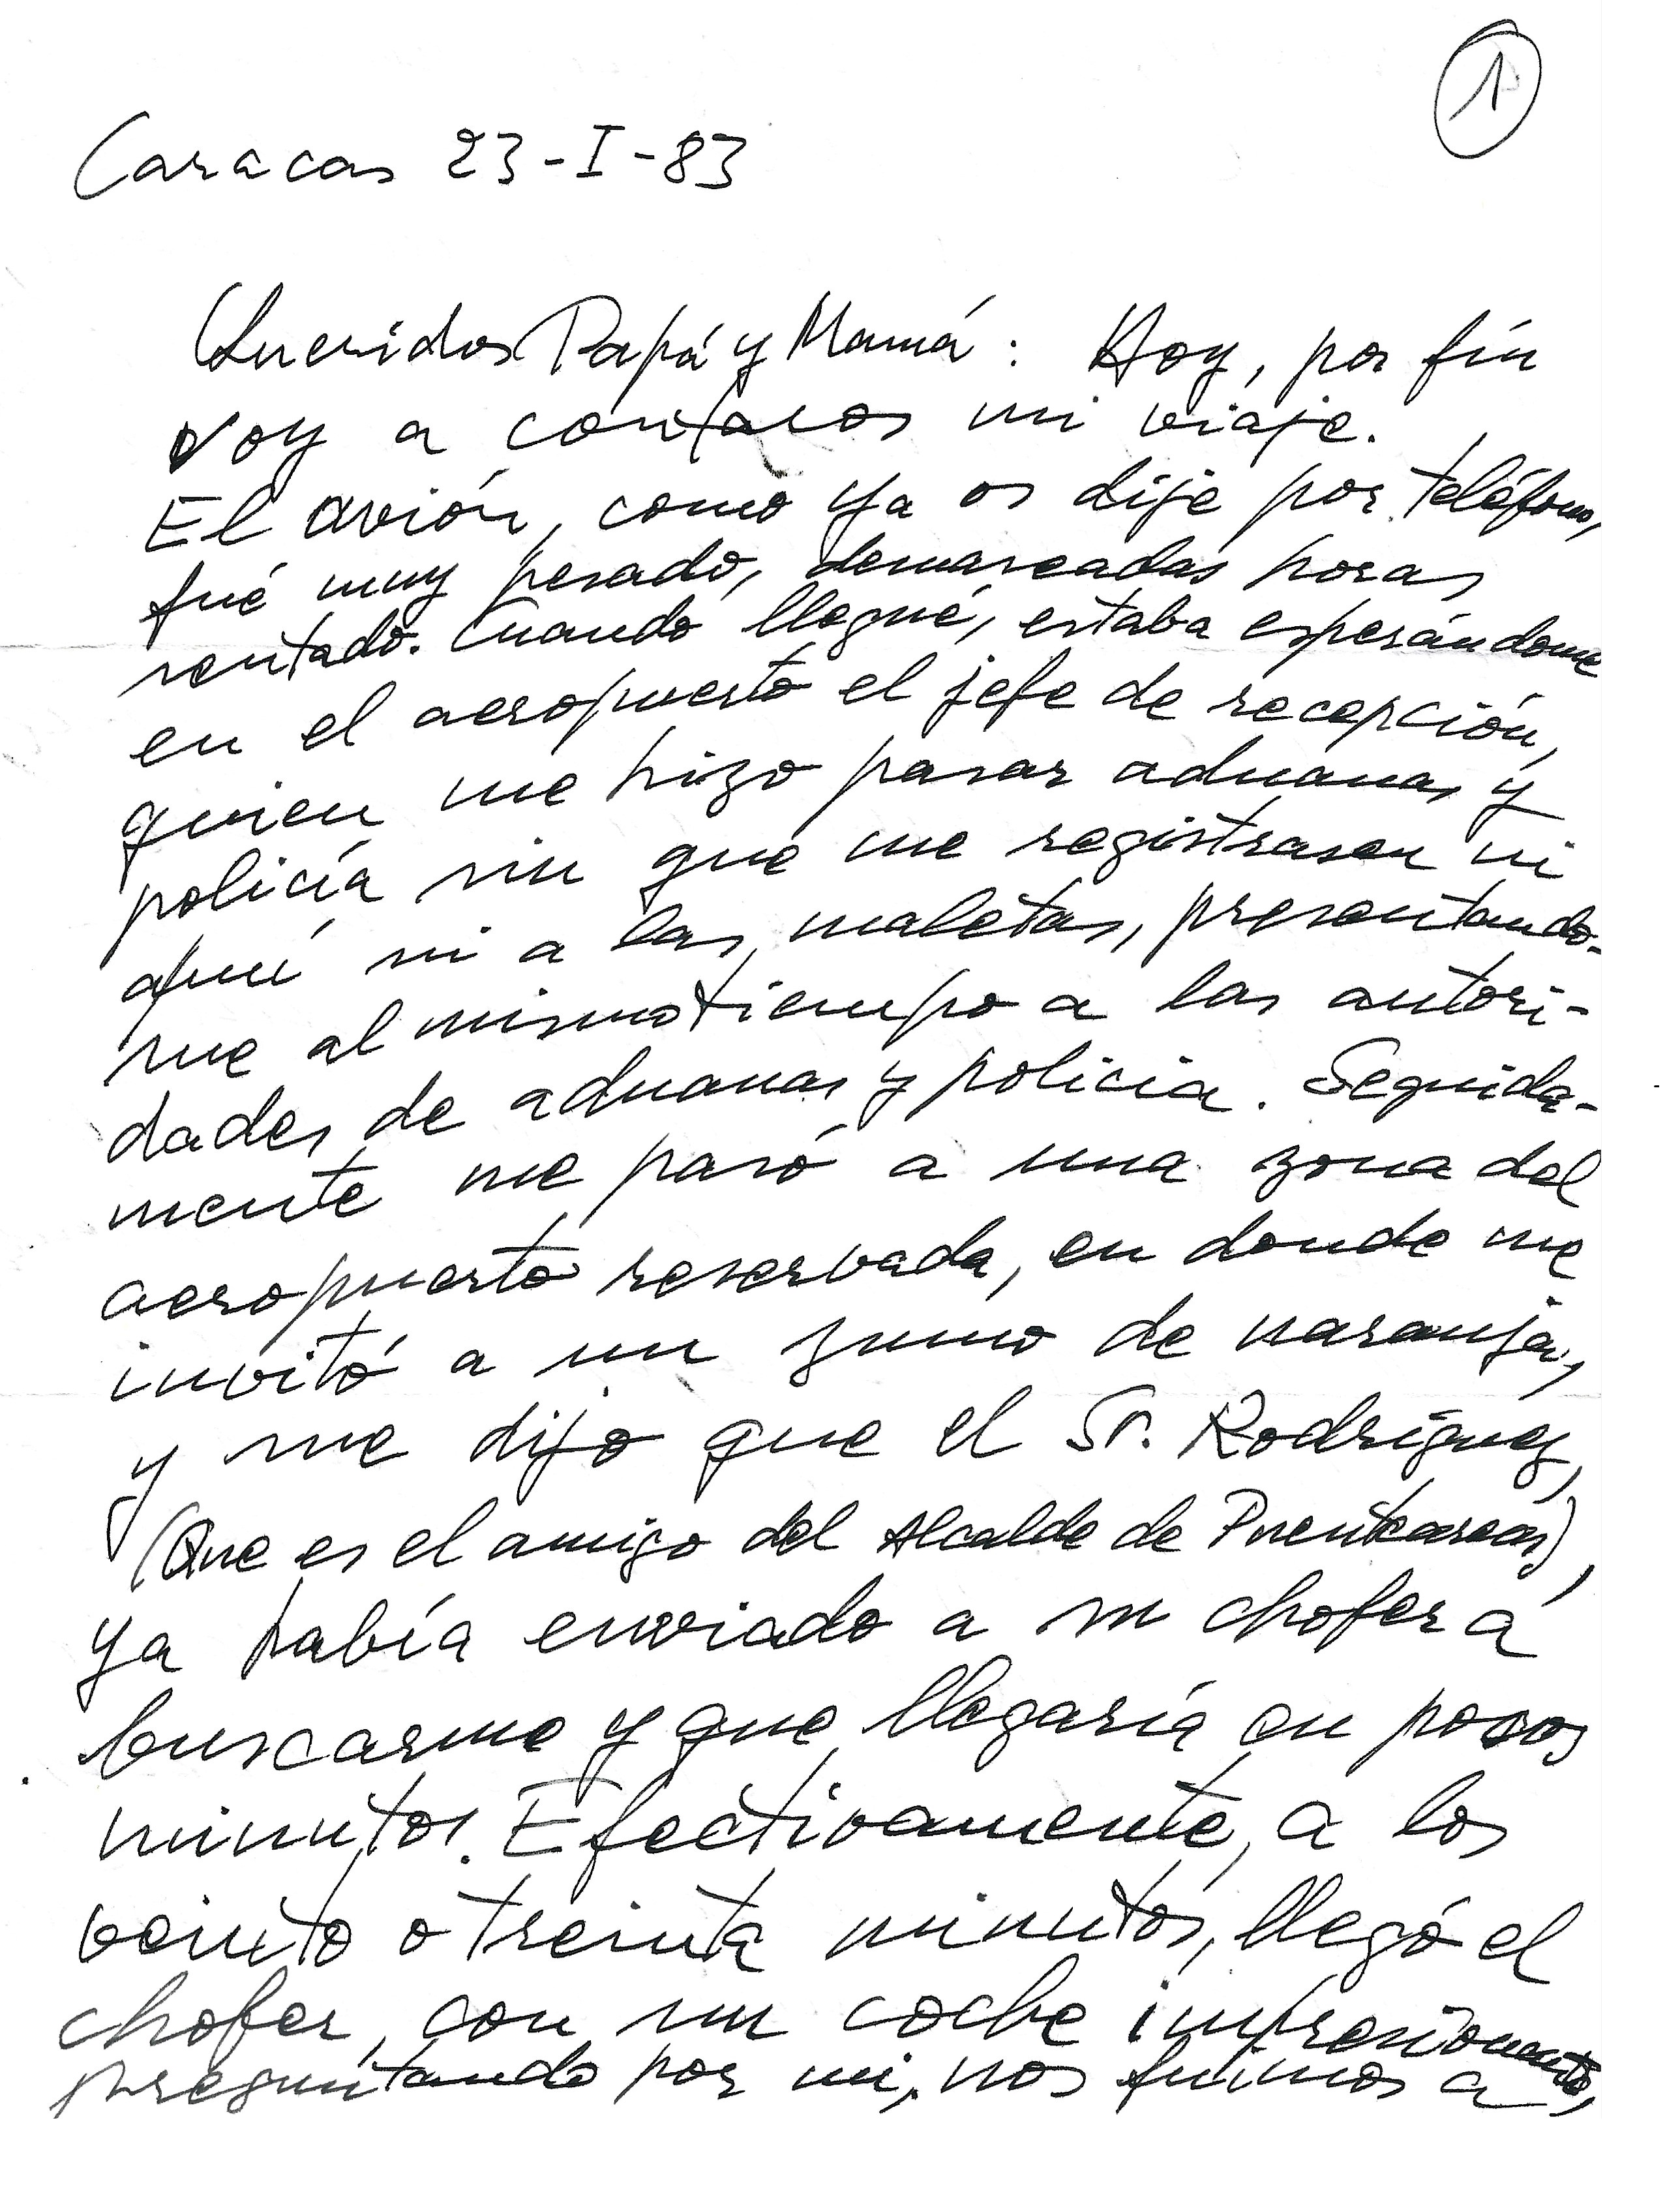 1
Caracas 23-I-83
Queridos Papá y Mamá: Hoy, por fín
voy a contaros mi viaje.
El avión, como ya os dije por teléfono,
fué muy pesado, demaseadas horas
sentado. Cuando llegué, estaba esperándome
en el aeropuerto el jefe de recepción,
quien me hizo pasar aduanas y
policía sin que me registrasen ni
a mí ni a las maletas, presentando-
me al mismo tiempo a las autori-
dades de aduanas y policia. Seguida-
mente me pasó a una zona del
aeropuerto reservada, en donde me
invitó a un zumo de naranja,
y me dijo que el Sr. Rodríguez,
(Que es el amigo del Alcalde de Puenteareas),
ya había enviado a su chofer a
buscarme y que llegaría en pocos
minutos. Efectivamente, a los
veinte o treinta minutos, llegó el
chofer, con un coche impresionante,
preguntando por mi, nos fuimos a,